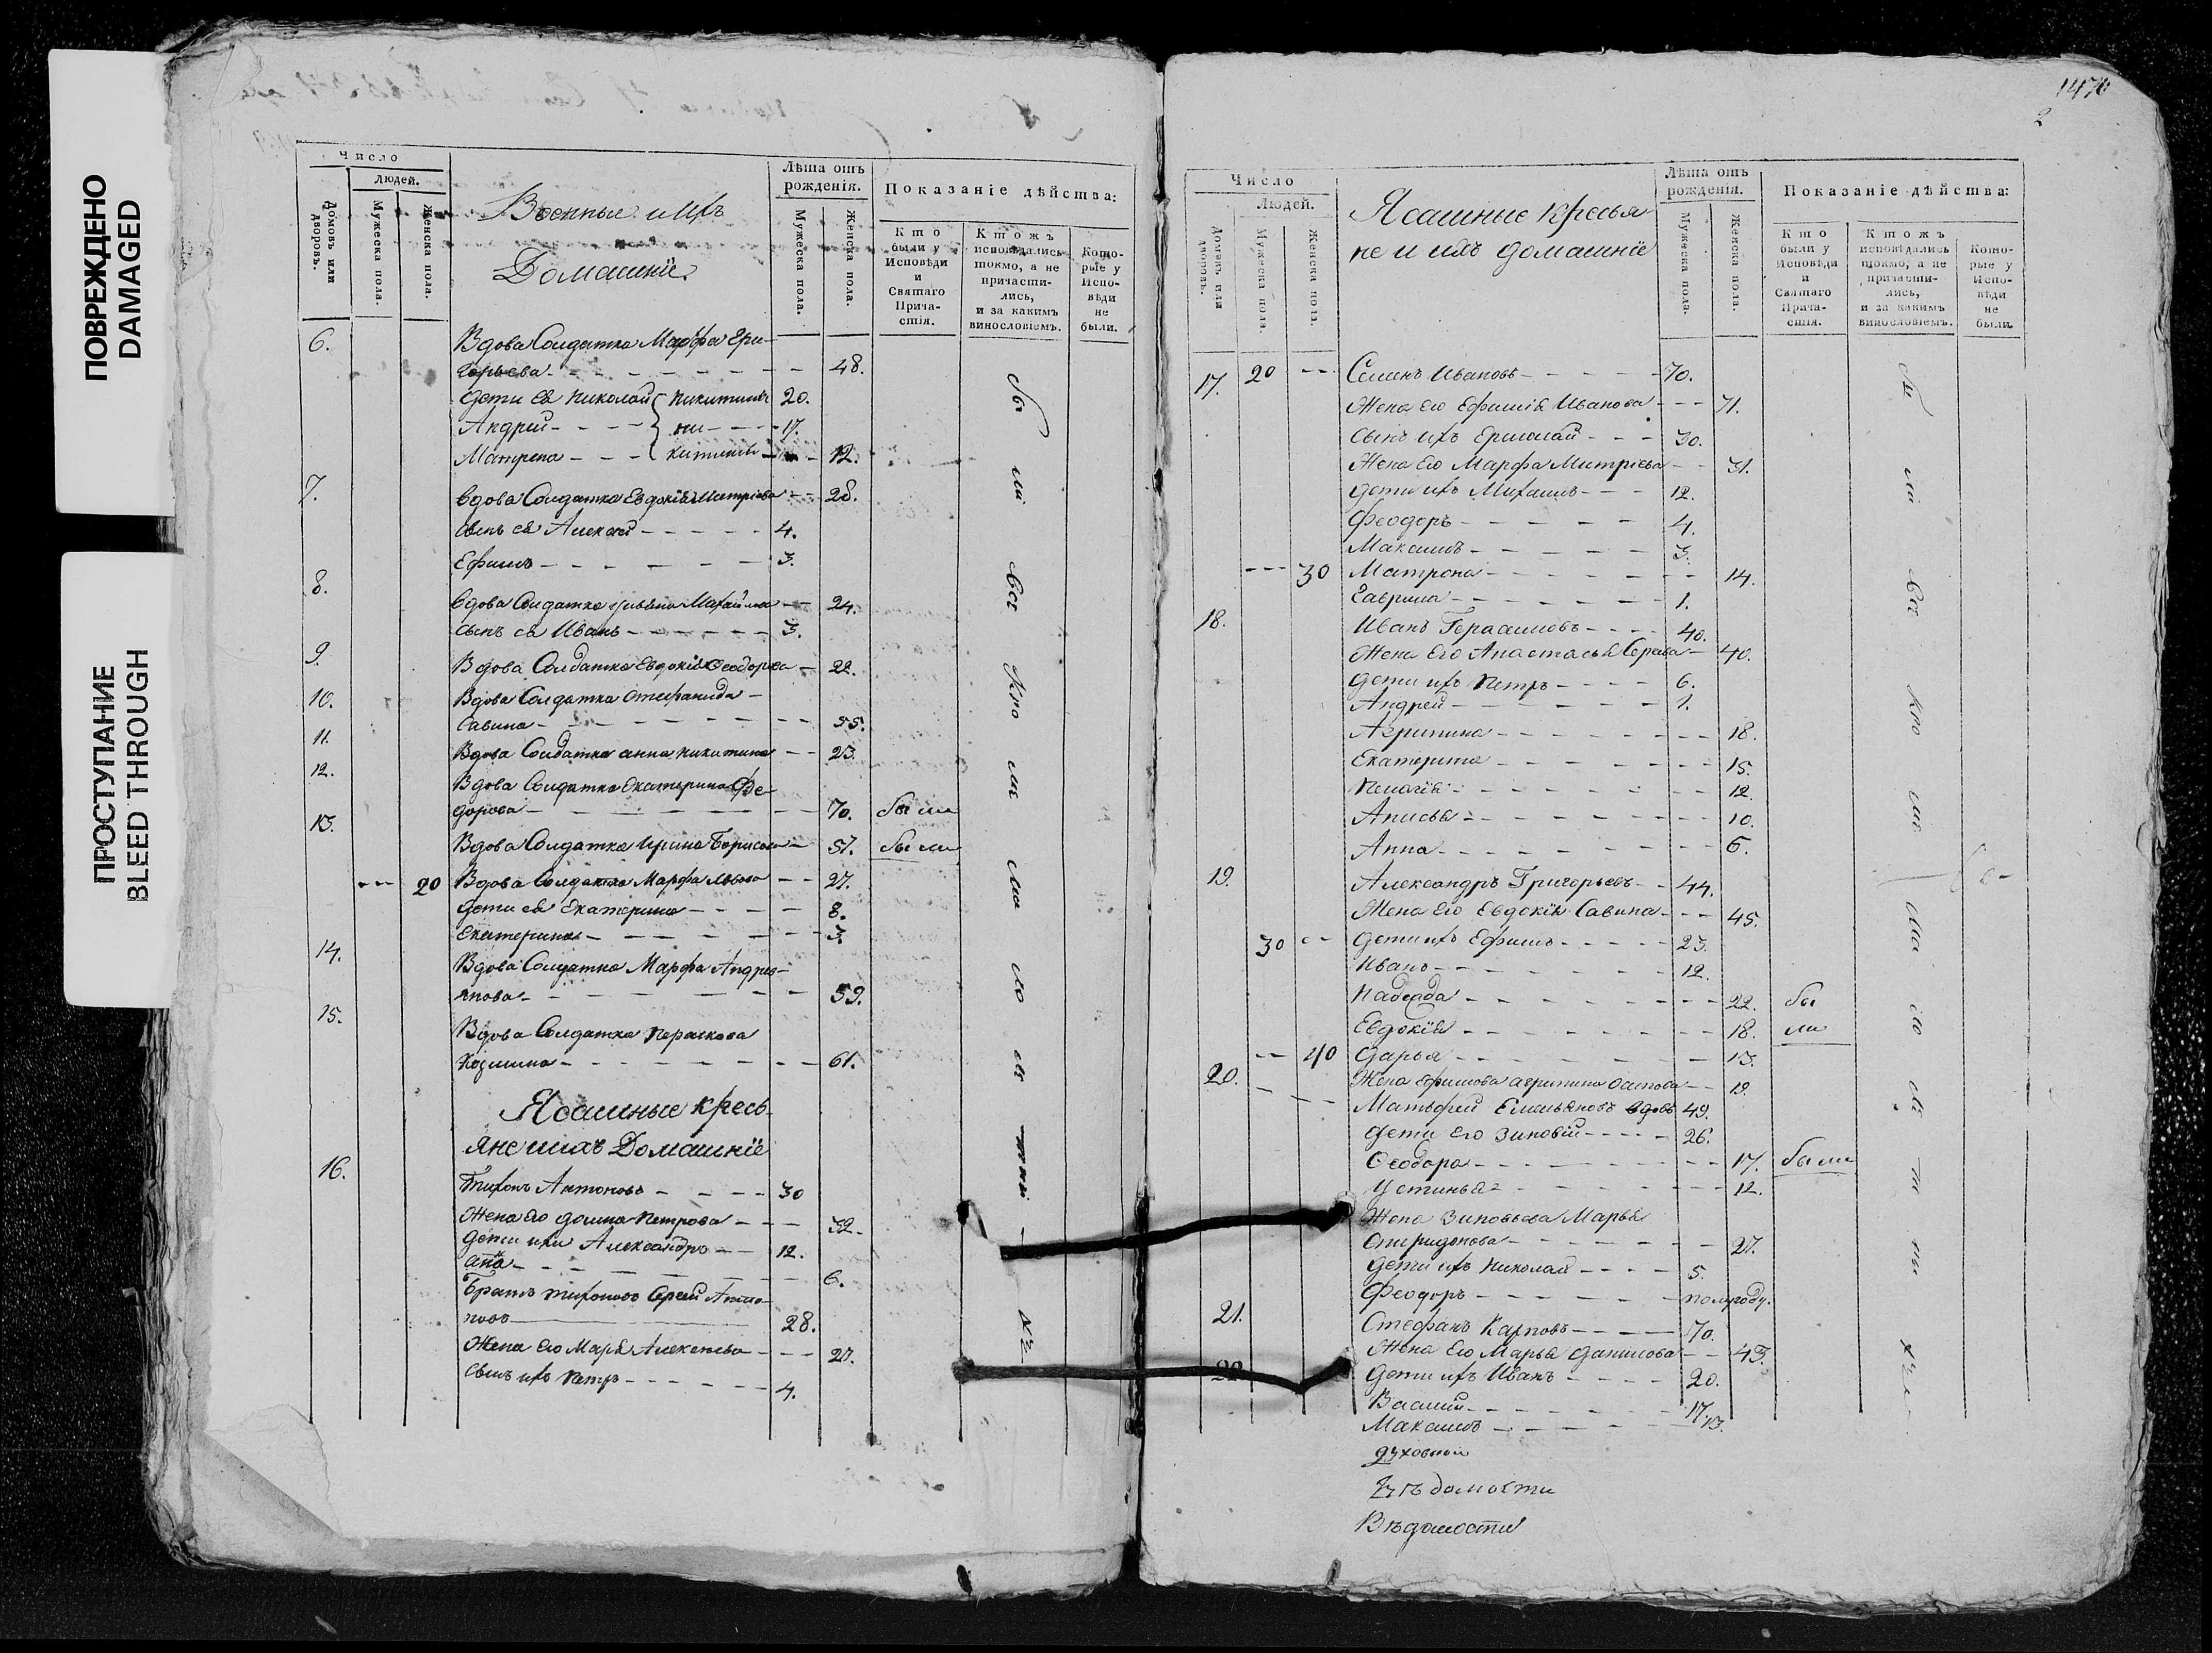 ПОВРЕЖДЕНО
DAMAGED
ПРОСТУПАНИЕ
BLEED THROUGH
Число
Людей.
Домовъ или дворовъ.
Мужеска пола.
Женска пола.
Военные и ихъ
Домашнїе
Лѣта отъ рожденія.
Мужеска пола.
Женска пола.
Показаніе дѣйства:
Кто были у Исповѣди и Святаго Причастія.
Ктожъ исповѣдались токмо, а не причастились, и за какимъ винословіемъ.
Которые у Исповѣди не были.
6. Вдова Солдатка Марфа Гри-
горьева 48.
дети ея Николай Никитины 20.
Андрей 17.
Матрена 12.
7. Вдова Солдатка Евдокїя Митрїева 28.
сынъ ея Алексей 4.
Ефимъ 3.
8. вдова Солдатка 24.
сынъ ея Иванъ 3.
9. Вдова Солдатка Евдокїя Ѳеодорова 22.
10. Вдова Солдатка Стефанида
Савина 55.
11. Вдова Солдатка анна никитина 23.
12. Вдова Солдатка Екатерина Фе-
дорова 70. были
13. Вдова Солдатка Ирина Борисова 51. были
20 Вдова Солдатка Марфа 27.
дети ея Екатерина 8.
Екатерина 3.
14. Вдова Солдатка Марфа Андре-
янова 59.
15. Вдова Солдатка Параскова
Козмина 61.
Ясашные кресь
яне и ихъ Домашнїе
16. Тихонъ Антоновъ 30
Жена его домна Петрова 32.
дети ихъ Александръ 12.
6.
Братъ тихоновъ Сергей Анто-
новъ 28.
Жена его Марья Алексеева 27.
Сынъ ихъ Петръ 4.
1474
2
Число
Людей.
Домовъ или дворовъ.
Мужеска пола.
Женска пола.
Ясашные кресья
не и ихъ домашнїе
Лѣта отъ рожденія.
Мужеска пола.
Женска пола.
Показаніе дѣйства:
Кто были у Исповѣди и Святаго Причастія.
Ктожъ исповѣдались токмо, а не причастились, и за какимъ винословіемъ.
Которые у Исповѣди не были.
17. 20 Семенъ Ивановъ 70.
Жена его Ефимїя Иванова 71.
сынъ ихъ Ермолай 30.
Жена его Марфа Митрїева 31.
дети ихъ Михаилъ 12.
Феодоръ 4.
Максимъ 3.
30 Матрона 14.
Гаврила 1.
18. Иванъ Герасимовъ 40.
Жена его Анастасья 40.
дети ихъ Петръ 6.
Андрей 1.
Агрипина 18.
Екатерина 15.
Пелагїя 12.
Анисья 10.
Анна 6.
19. Александръ Григорьевъ 44.
Жена его Евдокїя Савина 45.
30 дети ихъ Ефимъ 23.
Иванъ 12.
Надежда 22. бы
Евдокїя 18. ли
40 дарья 13.
20. Жена Ефимова агрипина Осипова 19.
Матвфей Емельяновъ вдовъ 49.
дети его Зиновїй 26.
Ѳеодора 17. были
Устинья 12.
Жена Зиновьева Марья
Спиридонова 27.
дети ихъ Николай 5.
Феодоръ полугоду.
21. Стефанъ Карповъ 70.
Жена его Марья данилова 43.
22 дети ихъ Иванъ 20.
Василий 17.
Максимъ 13.
духовной
Вѣдомости